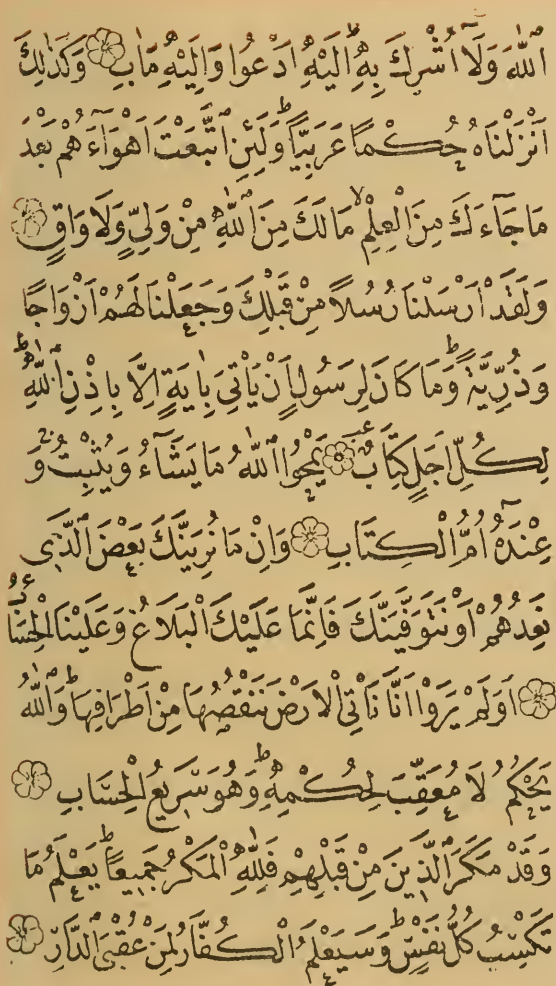 اَللّٰهَ وَلَآ اُشْرِكَ بِهٖؕ اِلَيْهِ اَدْعُوا وَاِلَيْهِ مَاٰبِ ۝ وَكَذٰلِكَ
اَنْزَلْنَاهُ حُكْمًا عَرَبِيًّاؕ وَلَئِنِ اتَّبَعْتَ اَهْوَٓاءَهُمْ بَعْدَ
مَا جَٓاءَكَ مِنَ الْعِلْمِۙ مَا لَكَ مِنَ اللّٰهِ مِنْ وَلِيٍّ وَلَا وَاقٍ ۝
وَلَقَدْ اَرْسَلْنَا رُسُلًا مِنْ قَبْلِكَ وَجَعَلْنَا لَهُمْ اَزْوَاجًا
وَذُرِّيَّةًؕ وَمَا كَانَ لِرَسُولٍ اَنْ يَاْتِيَ بِاٰيَةٍ اِلَّا بِاِذْنِ اللّٰهِؕ
لِكُلِّ اَجَلٍ كِتَابٌ ۝ يَمْحُوا اللّٰهُ مَا يَشَٓاءُ وَيُثْبِتُ وَ
عِنْدَهُٓ اُمُّ الْكِتَابِ ۝ وَاِنْ مَا نُرِيَنَّكَ بَعْضَ الَّذِى
نَعِدُهُمْ اَوْ نَتَوَفَّيَنَّكَ فَاِنَّمَا عَلَيْكَ الْبَلَاغُ وَعَلَيْنَا الْحِسَابُ
۝ اَوَلَمْ يَرَوْا اَنَّا نَاْتِى الْاَرْضَ نَنْقُصُهَا مِنْ اَطْرَافِهَاؕ وَاللّٰهُ
يَحْكُمُ لَا مُعَقِّبَ لِحُكْمِهٖؕ وَهُوَ سَرِيعُ الْحِسَابِ ۝
وَقَدْ مَكَرَ الَّذِينَ مِنْ قَبْلِهِمْ فَلِلّٰهِ الْمَكْرُ جَمِيعًاؕ يَعْلَمُ مَا
تَكْسِبُ كُلُّ نَفْسٍؕ وَسَيَعْلَمُ الْكُفَّارُ لِمَنْ عُقْبَى الدَّارِ ۝